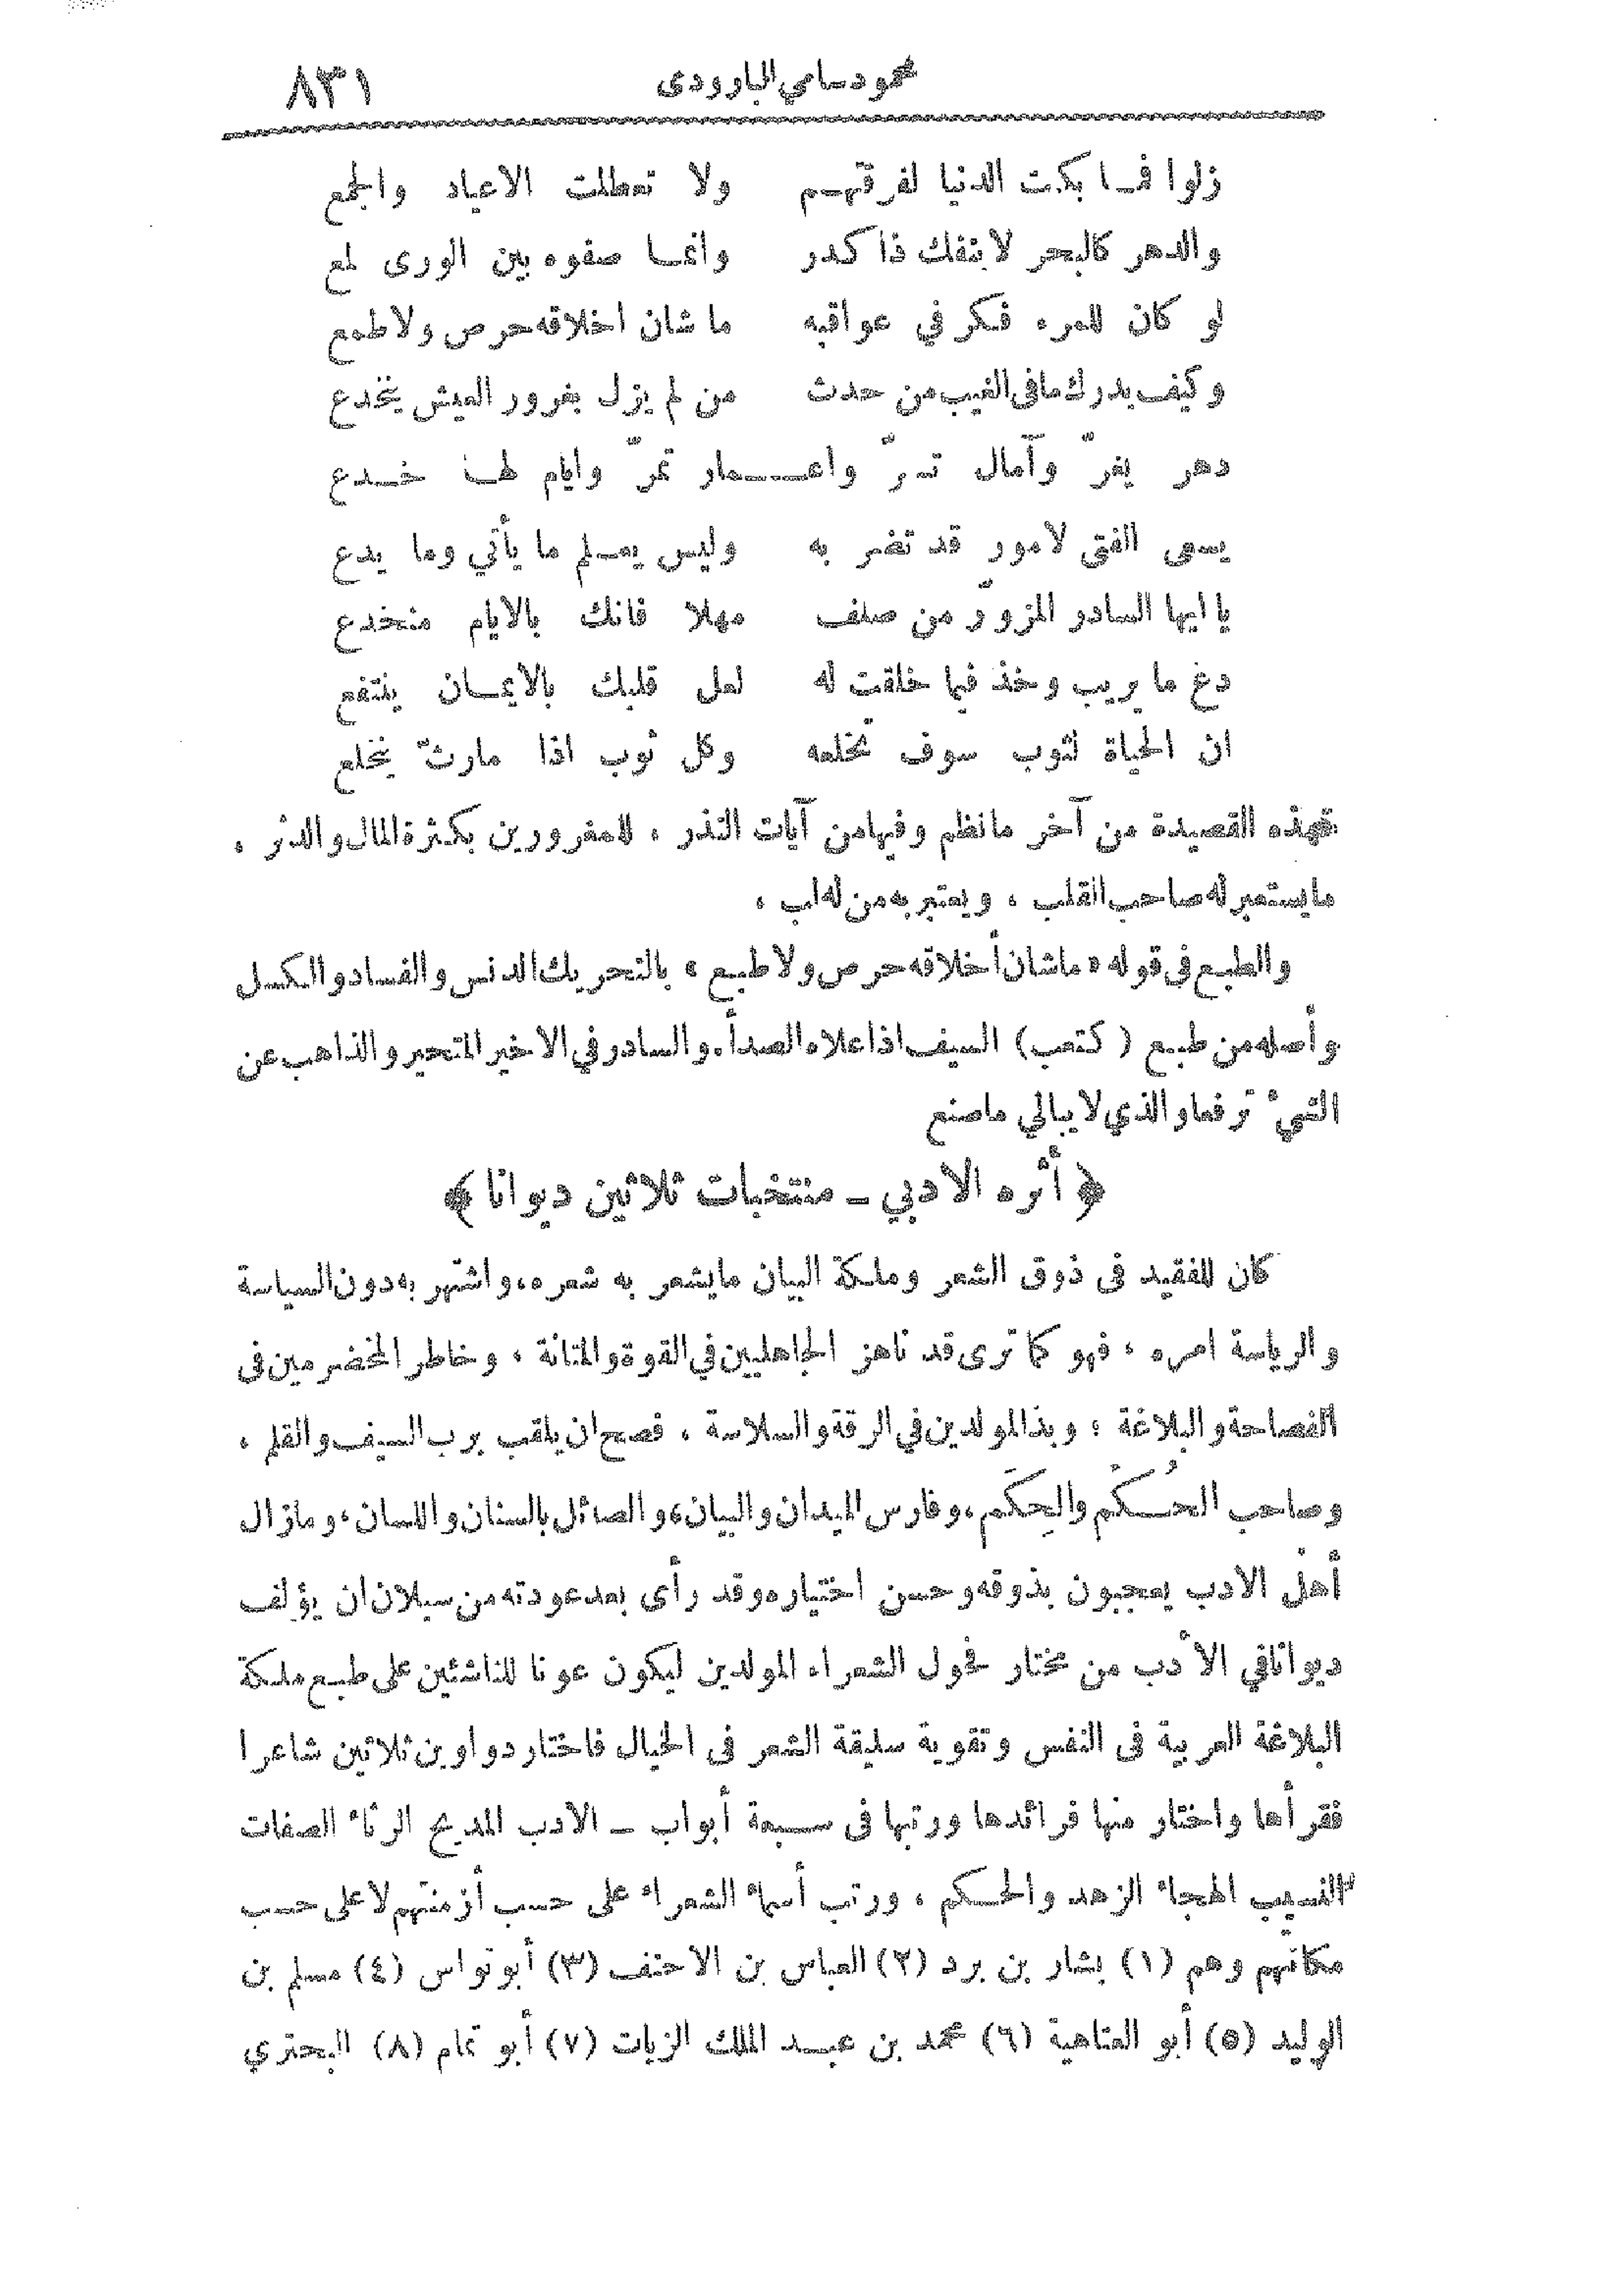 محمود سامي البارودى ٨٣١
زلوا فمـا بكت الدنيا لفرقتهـم ولا تعطلت الاعياد والجمع
والدهر كالبحر لا ينفك ذا كدر وانمـا صفوه بين الورى لمع
لو كان للمرء فكر في عواقبه ما شان اخلاقه حرص ولا طمع
وكيف يدرك ما فى الغيب من حدث من لم يزل بغرور العيش ينخدع
دهر يغرّ وآمال تسرّ واعـــمار تمرّ وايام لهـا خـدع
يسعى الفتى لامور قد تضر به وليس يعـلم ما يأتي وما يدع
يا ايها السادر المزورّ من صلف مهلا فانك بالايام منخدع
دع ما يريب وخذ فيما خلقت له لعل قلبك بالايمـان ينتفع
ان الحياة لثوب سوف تخلعه وكل ثوب اذا مارثّ ينخلع
فهذه القصيدة من آخر ما نظم وفيها من آيات النذر ، للمغرورين بكثرة المال والدثر ،
ما يستعبر له صاحب القلب ، ويعتبر به من له لب ،
والطبع فى قوله « ما شان أخلاقه حرص ولا طبع » بالتحريك الدنس والفساد والكسل
وأصله من طبع ( كتعب ) السيف اذا علاه الصدأ. والسادر في الاخير المتحير والذاهب عن
الشيء ترفعا والذي لا يبالي ما صنع
﴿ أثره الادبي ــ منتخبات ثلاثين ديوانا ﴾
كان للفقيد فى ذوق الشعر وملكة البيان ما يشعر به شعره، واشتهر به دون السياسة
والرياسة امره ، فهو كما ترى قد ناهز الجاهليين في القوة والمتانة ، وخاطر المخضرمين فى
الفصاحة والبلاغة ؛ وبذ المولدين في الرقة والسلاسة ، فصح ان يلقب برب السيف والقلم ،
وصاحب الحُـكْم والحِكَم، وفارس الميدان والبيان، والصائل بالسنان واللسان، وما زال
أهل الادب يعجبون بذوقه وحسن اختياره وقد رأى بعد عودته من سيلان ان يؤلف
ديوانا في الأدب من مختار فحول الشعراء المولدين ليكون عونا للناشئين على طبع ملكة
البلاغة العربية فى النفس وتقوية سليقة الشعر فى الخيال فاختار دواوين ثلاثين شاعرا
فقرأها واختار منها فرائدها ورتبها فى سـبعة أبواب ــ الادب المديح الرثاء الصفات
النسيب الهجاء الزهد والحـكم ، ورتب أسماء الشعراء على حسب أزمنتهم لا على حسب
مكانتهم وهم (١) بشار بن برد (٢) العباس بن الاحنف (٣) أبو نواس (٤) مسلم بن
الوليد (٥) أبو العتاهية (٦) محمد بن عبـد الملك الزيات (٧) أبو تمام (٨) البحتري